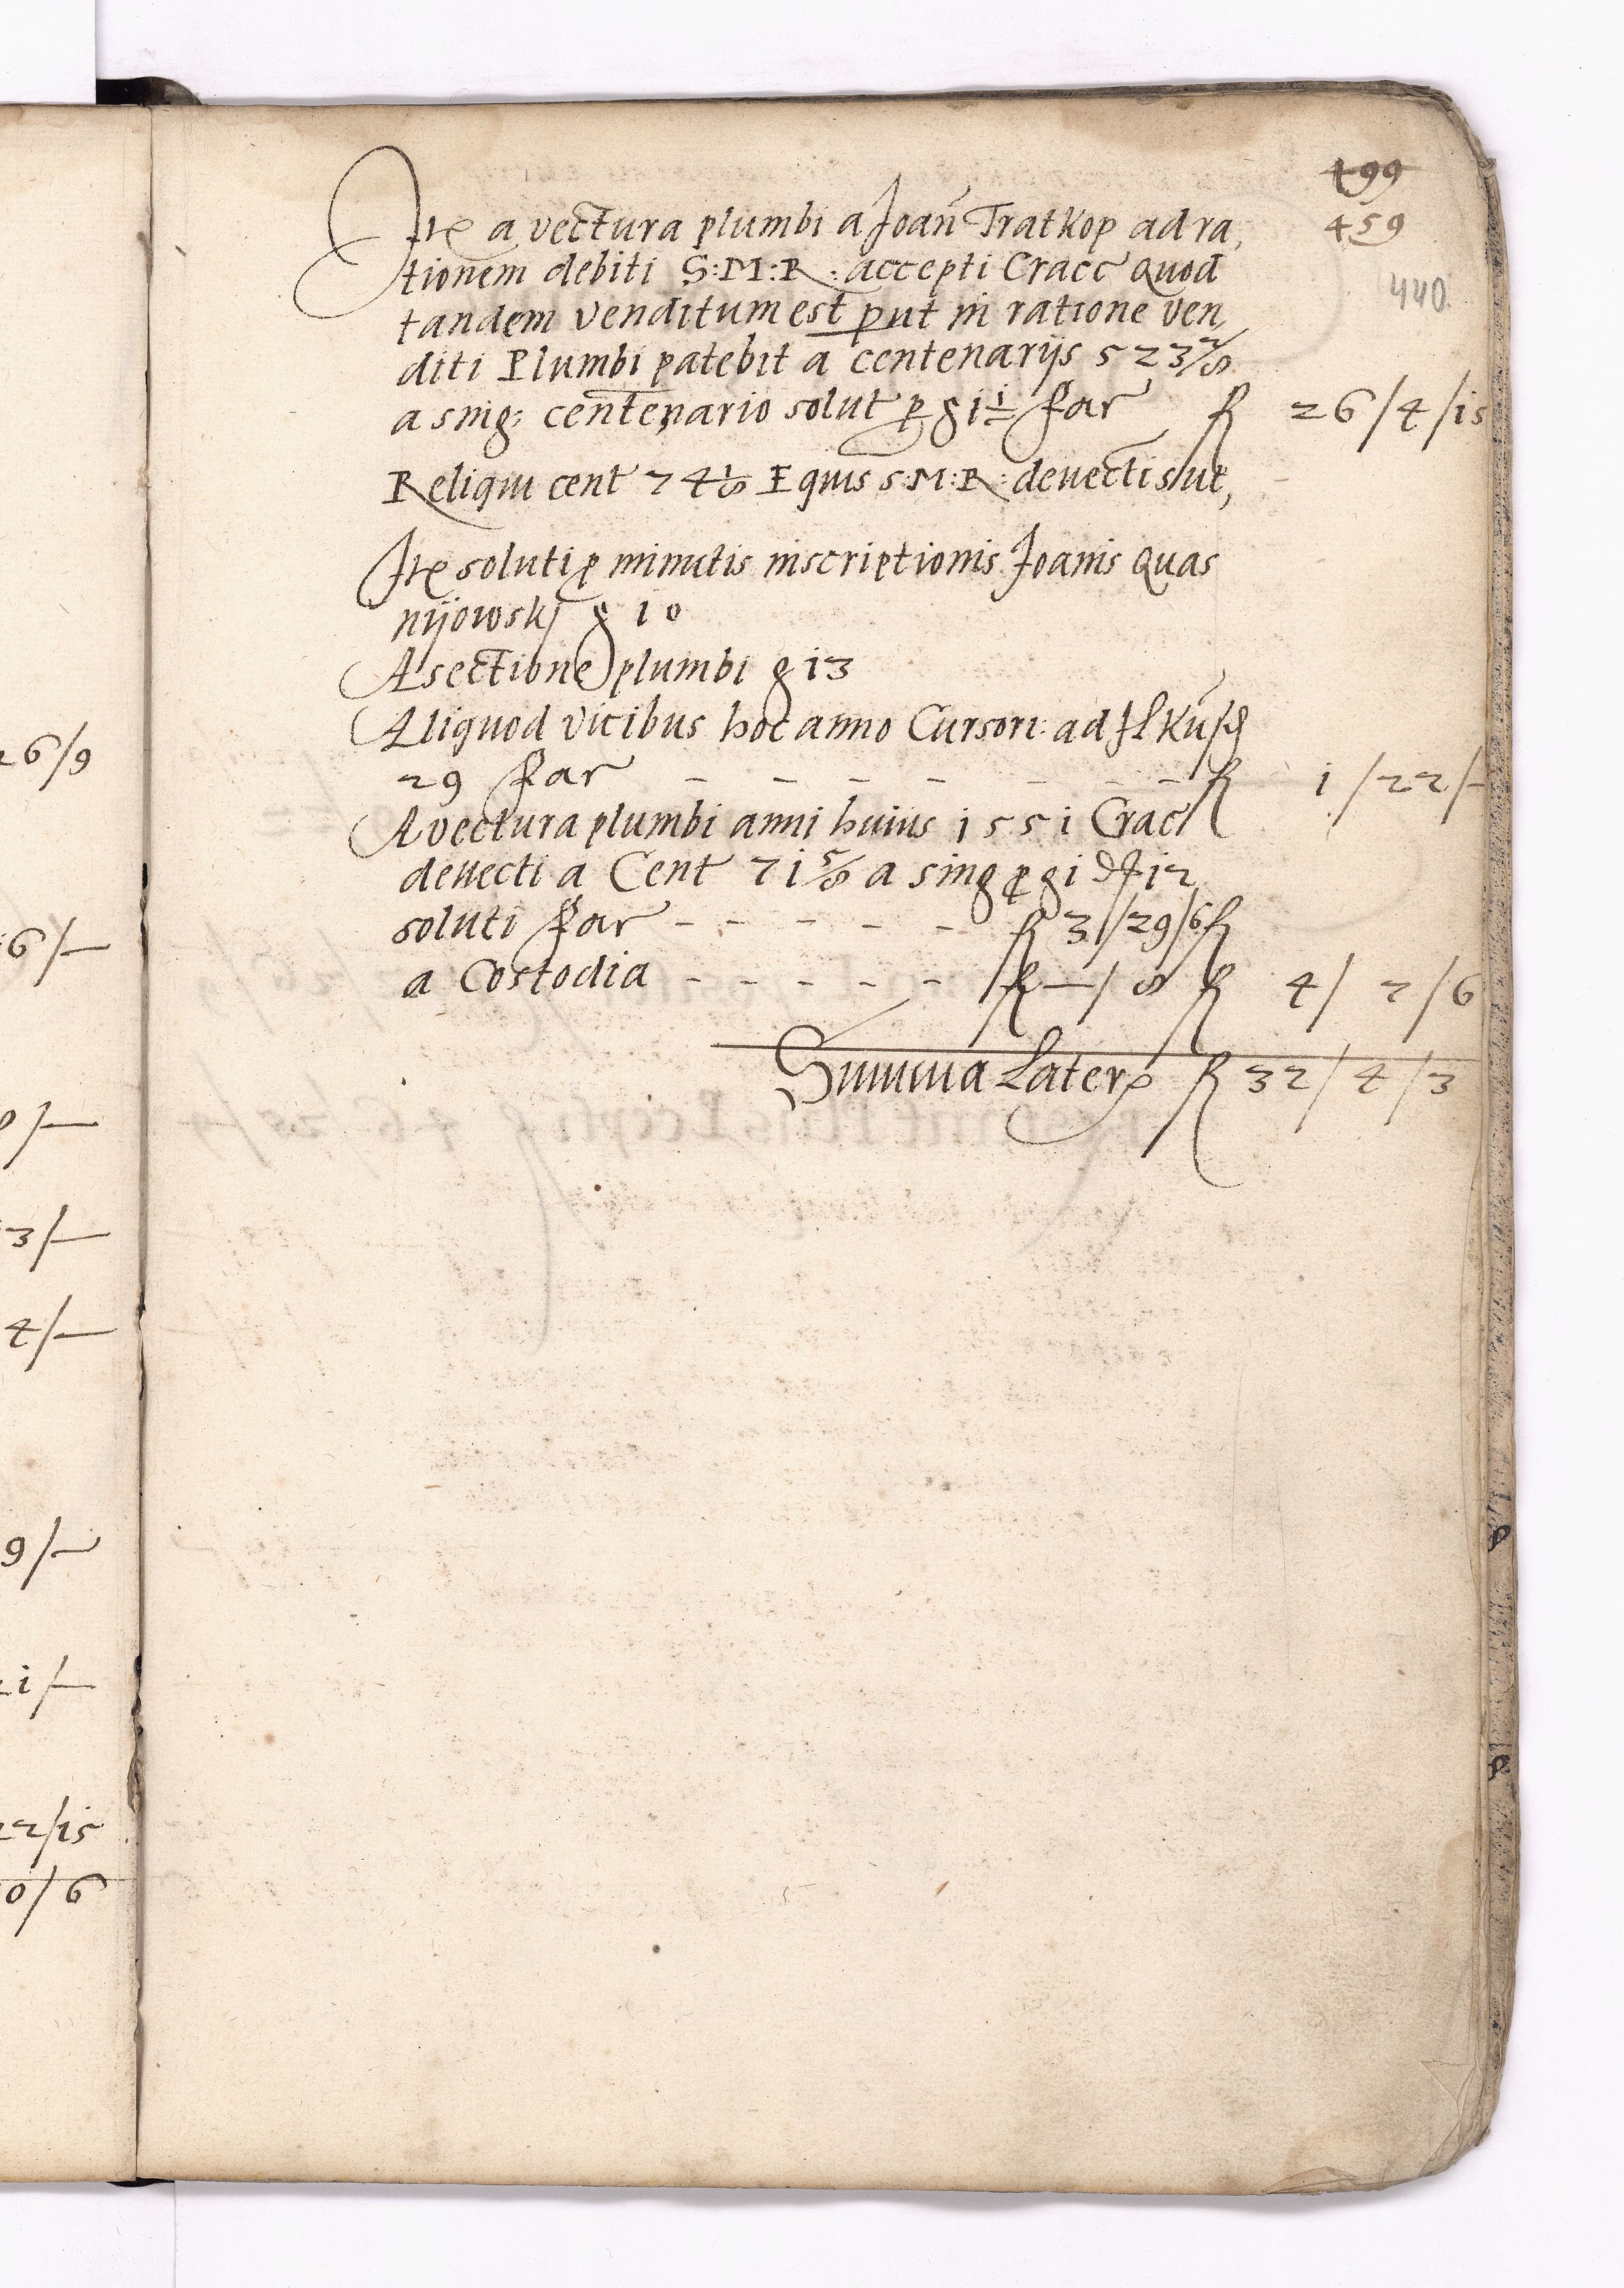 499
459
440.
Ite a vectura plumbi a Joan Tratkop ad ra,
tionem debiti S:M:R: accepti Cracc quod
tandem venditum est put in ratione ven,
diti Plumbi patebit a centenarijs 523 2/8
a sing: centenario solut p g i 1/2 far fl 26/4/15
Reliqui cent 74 1/8 Equis S:M:R: devecti sut,
Ite soluti p minutis inscriptionis Joanis Quas
nijowskj g 10
A sectione plumbi g 13
Aliquod vicibus hoc anno Cursori: ad Ilkush
29 far - - - - - - - fl 1/22/-
A vectura plumbi anni huius 1551 Crac
devecti a Cent 71 5/8 a sing p g i d 12
soluti far - - - - - - fl 3/29/6 fl
a Costodia - - - - - fl —/8 fl 4/2/6
Summa Later fl 32/4/3
26/9
6/—
0/—
3/—
4/—
9/—
1/—
22/15
0/6